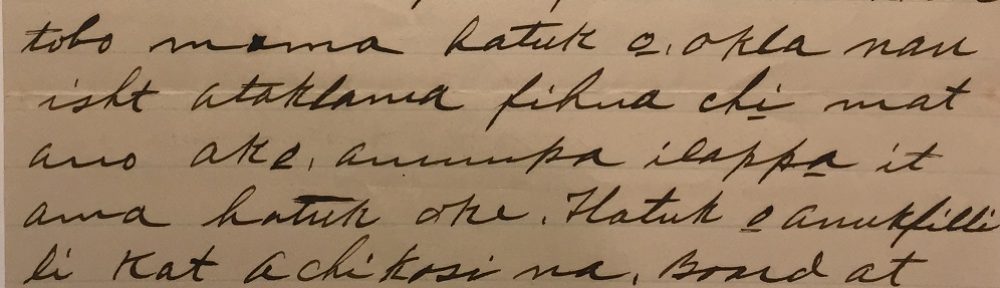 tobo moma hatuk o̱, okla nan
isht ataklama fihna chi̱ mat
ano oke, anumpa ilappa̱ it
ama hatuk oke. Hatuk o̱ anukfilli
li kat achikosi na, Board at